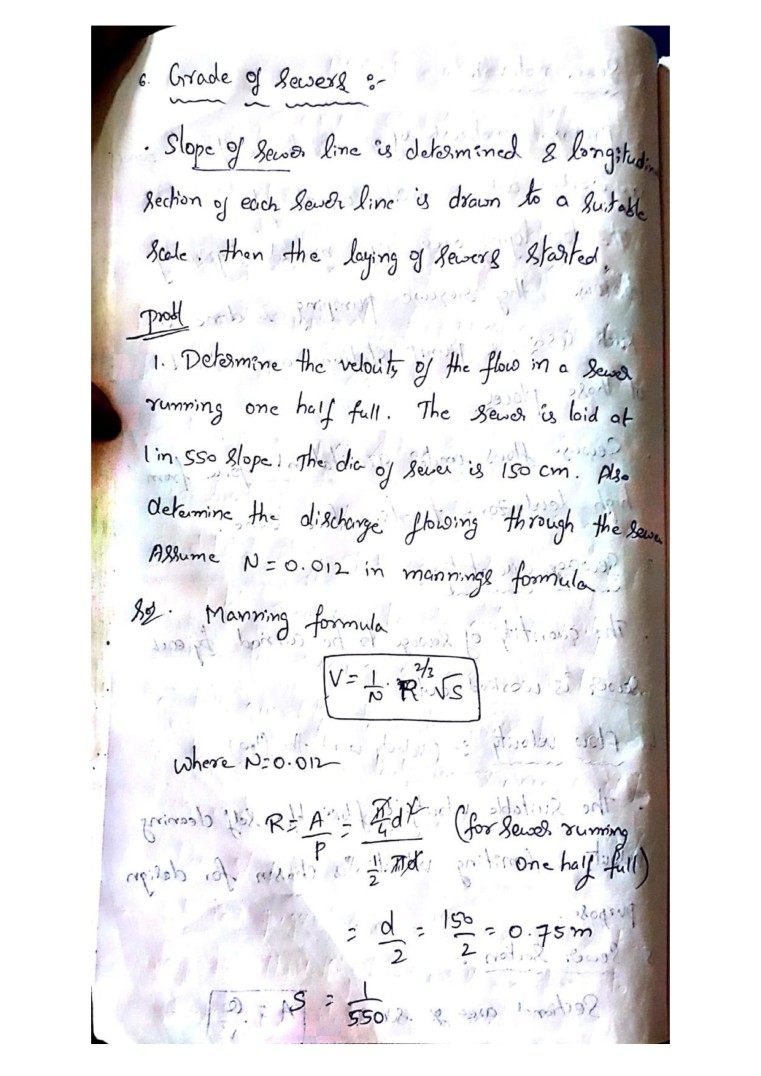 6. Grade of Sewers :-
. Slope of Sewer line is determined & longitudin
Section of each Sewer line is drawn to a Suitable
Scale. then the laying of Sewers Started.
Probl
1. Determine the velocity of the flow in a Sewer
running one half full. The Sewer is laid at
1 in 550 Slope. The dia of sewer is 150 cm. Also
determine the discharge flowing through the Sewer
Assume N = 0.012 in mannings formula
Sol. Manning formula
V = 1/N . R^2/3 √S
where N = 0.012
R = A/P = π/4 d² / 1/2 πd (for Sewer running
one half full)
= d/2 = 150/2 = 0.75m
S = 1/550